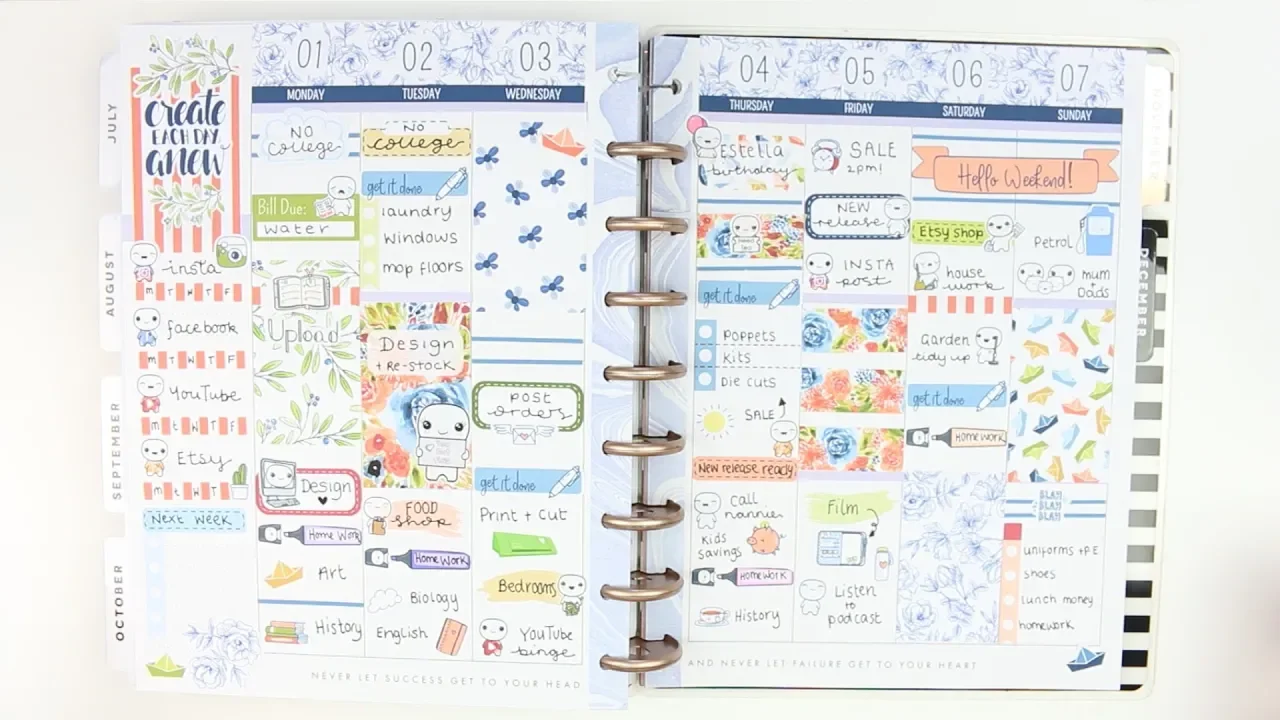 JULY
AUGUST
SEPTEMBER
OCTOBER
create
EACH DAY
anew
insta
M T W T F
facebook
M T W T F
YouTube
M T W T F
Etsy
M T W T F
Next week
01
MONDAY
NO
College
Bill Due:
Water
Upload
Design
Home Work
Art
History
02
TUESDAY
NO
College
get it done
laundry
windows
mop floors
Design
+ Re-stock
FOOD
shop
Home Work
Biology
English
03
WEDNESDAY
POST
orders
get it done
Print + Cut
Bedrooms
YouTube
binge
NEVER LET SUCCESS GET TO YOUR HEAD
04
THURSDAY
Estella
birthday
get it done
Poppets
Kits
Die cuts
SALE
New release ready
Call
nannie
Kids
savings
Home Work
History
05
FRIDAY
SALE
2pm!
NEW
release
INSTA
post
Film
Listen
to
podcast
06
SATURDAY
Hello Weekend!
Etsy shop
house
work
Garden
tidy up
get it done
Home Work
07
SUNDAY
Petrol
mum
+
Dads
BLAH
BLAH
BLAH
uniforms + P.E
shoes
lunch money
homework
AND NEVER LET FAILURE GET TO YOUR HEART
DECEMBER